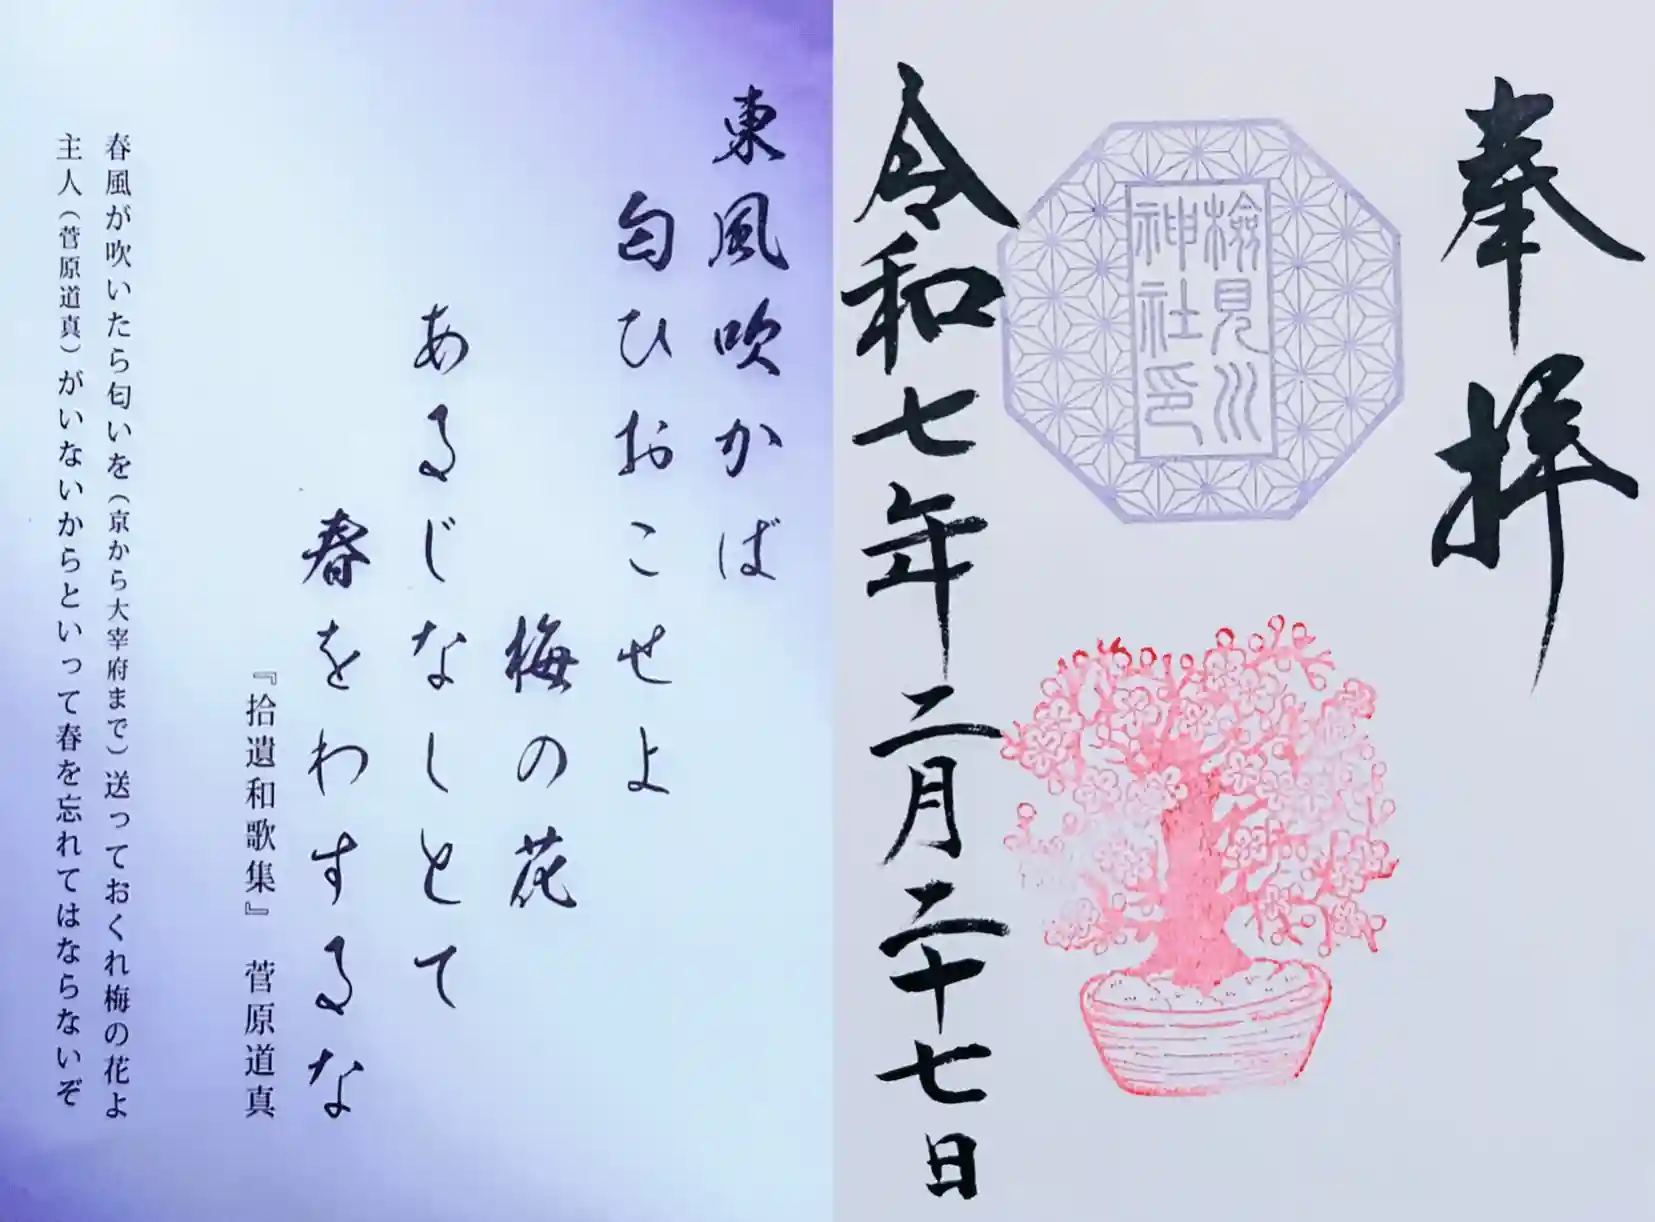 奉拝
検見川
神社印
令和七年二月二十七日
東風吹かば
匂ひおこせよ
梅の花
あるじなしとて
春をわするな
『拾遺和歌集』 菅原道真
春風が吹いたら匂いを(京から大宰府まで)送っておくれ梅の花よ
主人(菅原道真)がいないからといって春を忘れてはならないぞ